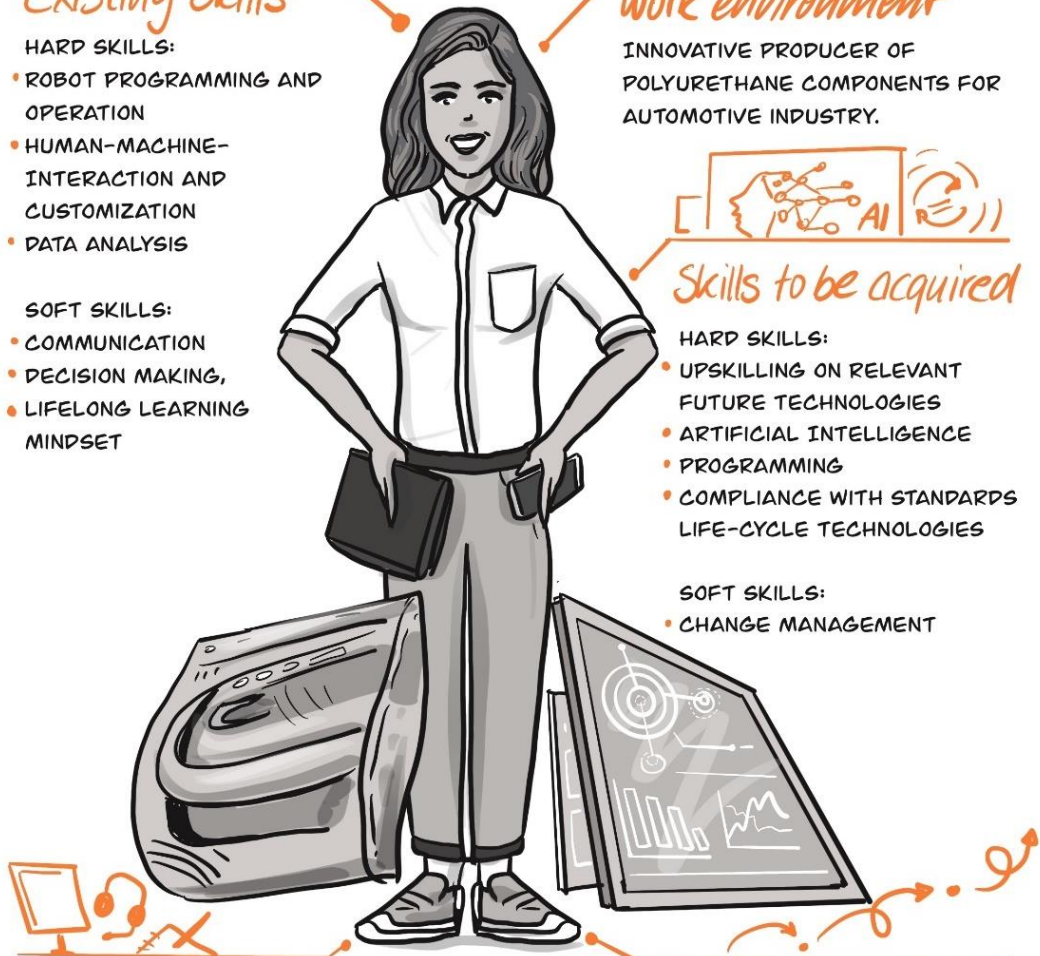 Existing Skills
HARD SKILLS:
• ROBOT PROGRAMMING AND
OPERATION
• HUMAN-MACHINE-
INTERACTION AND
CUSTOMIZATION
• DATA ANALYSIS
SOFT SKILLS:
• COMMUNICATION
• DECISION MAKING,
• LIFELONG LEARNING
MINDSET
Work environment
INNOVATIVE PRODUCER OF
POLYURETHANE COMPONENTS FOR
AUTOMOTIVE INDUSTRY.
AI
R
Skills to be acquired
HARD SKILLS:
• UPSKILLING ON RELEVANT
FUTURE TECHNOLOGIES
• ARTIFICIAL INTELLIGENCE
• PROGRAMMING
• COMPLIANCE WITH STANDARDS
LIFE-CYCLE TECHNOLOGIES
SOFT SKILLS:
• CHANGE MANAGEMENT